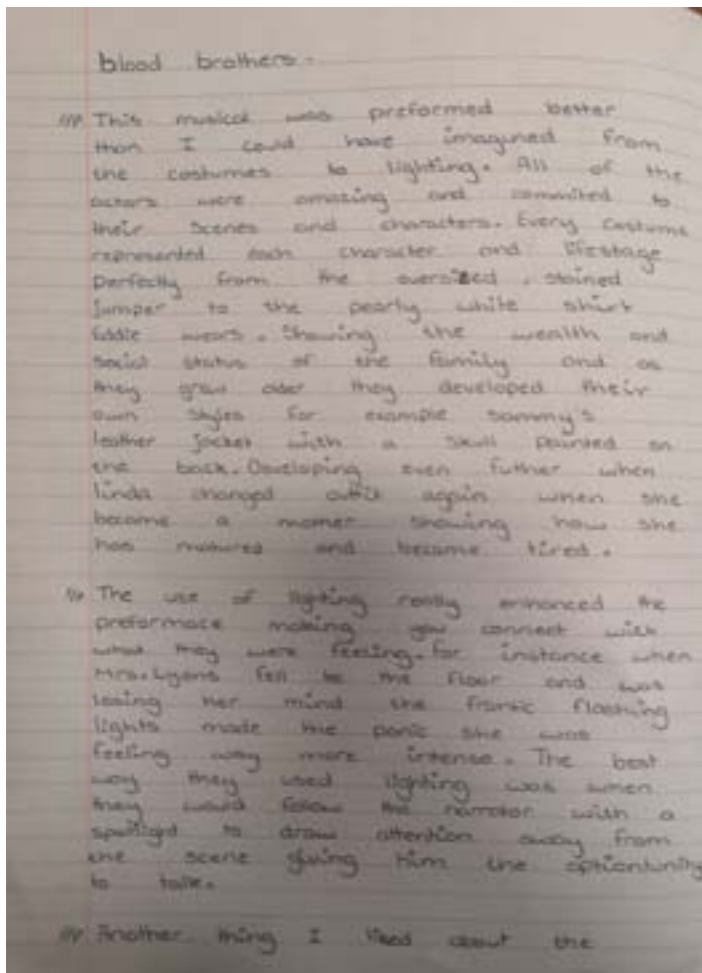 blood brothers.
/// This musical was preformed better
than I could have imagined from
the costumes to lighting. All of the
actors were amazing and commited to
their scenes and characters. Every costume
represented each character and lifestage
perfectly from the oversized, stained
jumper to the pearly white shirt
Eddie wears. Showing the wealth and
social status of the family and as
they grew older they developed their
own styles for example Sammy's
leather jacket with a skull painted on
the back. Developing even futher when
linda changed outfit again when she
became a mother showing how she
has matured and became tired.
/// The use of lighting really enhanced the
preformace making you connect with
what they were feeling. for instance when
Mrs. Lyons fell to the floor and was
losing her mind the frantic flashing
lights made the panic she was
feeling way more intense. The best
way they used lighting was when
they would follow the narrator with a
spotlight to draw attention away from
the scene giving him the
to talk.
/// Another thing I liked about the